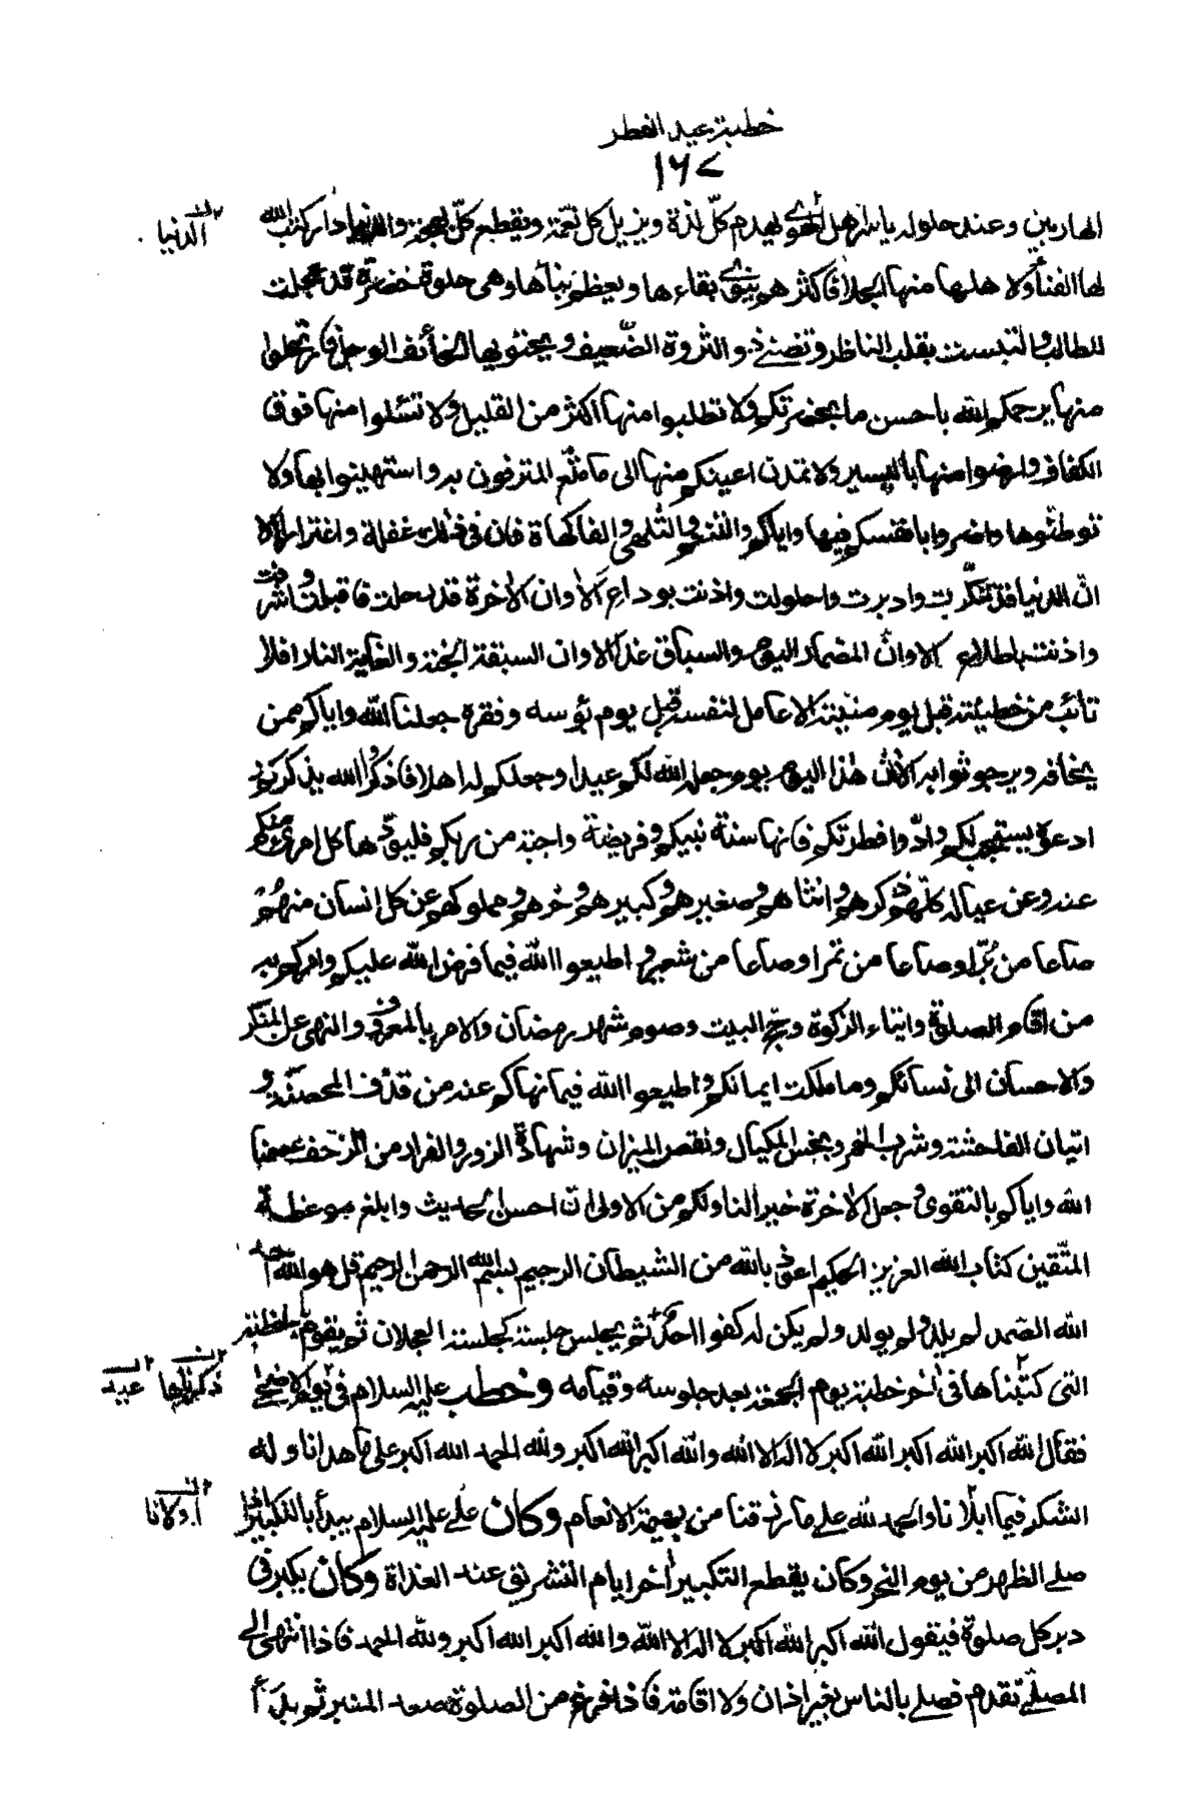 خطبة عيد الفطر
١٦٧
الهاربين وعند حلوله يأسر اهل الهوى يهدم كلّ لذة ويزيل كل نعمة ويقطع كلّ بهجة والدنيا دار كتب الله
الدنيا
لها الفناء ولاهلها منها الجلاء فاكثرهم ينوى بقاءها ويعظم بناءها وهى حلوة خضرة قد عجلت
للطالب والتبست بقلب الناظر وتضنى ذو الثروة الضّعيف ويجتويها الخائف الوجل فارتحلوا
منها يرحمكم الله باحسن ما بحضرتكم ولا تطلبوا منها اكثر من القليل ولا تسئلوا منها فوق
الكفاف وارضوا منها باليسير ولا تمدن اعينكم منها الى ما متّع المترفون به واستهينوا بها ولا
توطّنوها واضروا بانفسكم فيها واياكم والتنعم والتلهى والفاكهاة فان فى ذلك غفلة واغترارا الا
انّ الدنيا قد تنكّرت وادبرت واحلولت واذنت بوداع الا وان الاخرة قد رحلت فاقبلت واشرفت
واذنت باطلاع الا وانّ المضمار اليوم والسباق غدا الا وان السبقة الجنة والغاية النار افلا
تائب من خطيئته قبل يوم منيّته الا عامل لنفسه قبل يوم بؤسه وفقره جعلنا الله واياكم ممن
يخافه ويرجو ثوابه الا انّ هذا اليوم يوم جعله الله لكم عيدا وجعلكم له اهلا فاذكروا الله يذكركم و
ادعوه يستجب لكم وادّوا فطرتكم فانها سنة نبيكم وفريضة واجبة من ربكم فليؤدها كل امرئ منكم
عنه وعن عياله كلّهم ذكرهم وانثاهم وصغيرهم وكبيرهم وحرهم ومملوكهم عن كل انسان منهم
صاعا من بُرّ او صاعا من تمر او صاعا من شعير واطيعوا الله فيما فرض الله عليكم وامركم به
من اقام الصلوة وايتاء الزكوة وحجّ البيت وصوم شهر رمضان والامر بالمعروف والنهى عن المنكر
والاحسان الى نسائكم وما ملكت ايمانكم واطيعوا الله فيما نهاكم عنه من قذف المحصنة و
اتيان الفاحشة وشرب الخمر وبخس المكيال ونقص الميزان وشهادة الزور والفرار من الزحف عصمنا
الله واياكم بالتقوى وجعل الاخرة خيرا لنا ولكم من الاولى ان احسن الحديث وابلغ موعظة
المتّقين كتاب الله العزيز الحكيم اعوذ بالله من الشيطان الرجيم بسم الله الرحمن الرحيم قل هو الله احد
الله الصمد لم يلد ولم يولد ولم يكن له كفوا احد ثم يجلس جلسة كجلسة العجلان ثم يقوم بالخطبة
التى كتبناها فى اٰخر خطبة يوم الجمعة بعد جلوسه وقيامه وخطب عليه السلام فى يوم الاضحى
ذكرناها
عيد
فقال الله اكبر الله اكبر الله اكبر لا اله الا الله والله اكبر الله اكبر ولله الحمد الله اكبر على ما هدانا وله
الشكر فيما ابلانا والحمد لله على ما رزقنا من بهيمة الانعام وكان علىّ عليه السلام يبدأ بالتكبير اذا
اولانا
صلى الظهر من يوم النحر وكان يقطع التكبير اٰخر ايام التشريق عند الغداة وكان يكبر فى
دبر كل صلوة فيقول الله اكبر الله اكبر لا اله الا الله والله اكبر الله اكبر ولله الحمد فاذا انتهى الى
المصلّى تقدم فصلى بالناس بغير اذان ولا اقامة فاذا فرغ من الصلوة صعد المنبر ثم بدأ